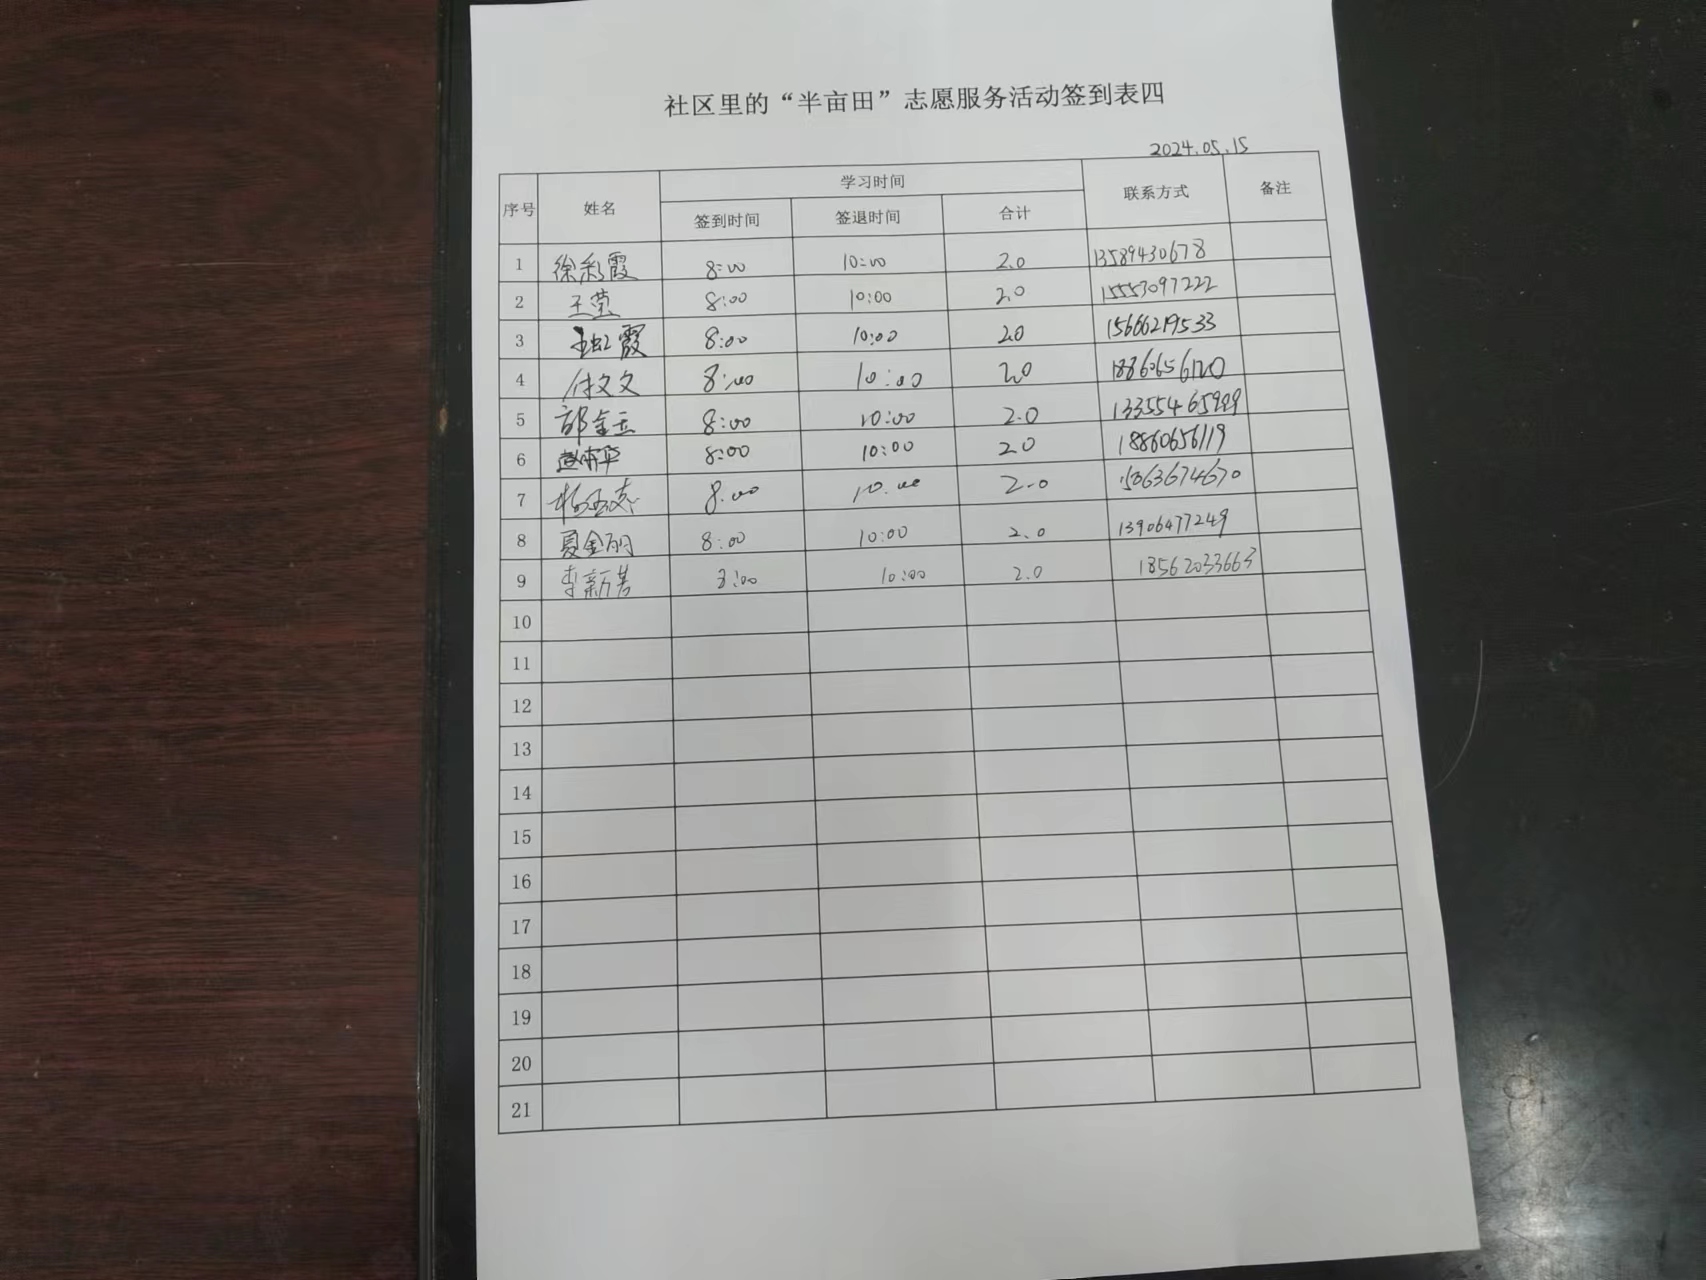 社区里的“半亩田”志愿服务活动签到表四
2024.05.15
序号 姓名 学习时间 联系方式 备注
签到时间 签退时间 合计
1 徐彩霞 8:00 10:00 2.0 13589430678
2 王莹 8:00 10:00 2.0 15553097222
3 王虹霞 8:00 10:00 2.0 15666219533
4 付文文 8:00 10:00 2.0 18860656120
5 郭金玉 8:00 10:00 2.0 13355465999
6 8:00 10:00 2.0 18860656119
7 8:00 10:00 2.0 15063674670
8 夏金丽 8:00 10:00 2.0 13906477249
9 李新 8:00 10:00 2.0 18562033663
10
11
12
13
14
15
16
17
18
19
20
21